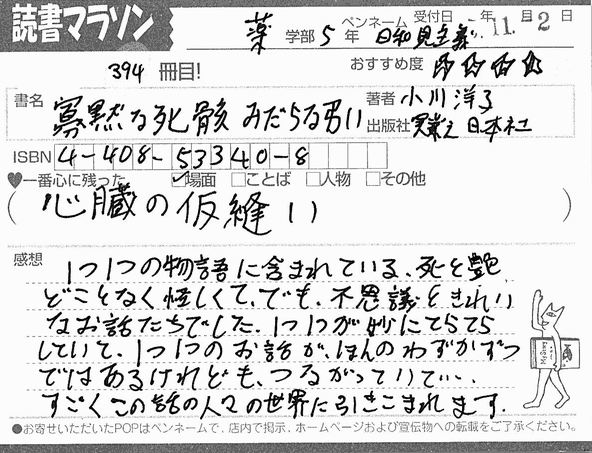 読書マラソン
薬 学部 5 年 ペンネーム 日和見主義 受付日 年 11 月 2 日
394 冊目! おすすめ度 ☆☆☆☆
書名 寡黙な死骸 みだらな弔い 著者 小川洋子
出版社 実業之日本社
ISBN 4-408-53340-8
♥一番心に残った ☑場面 □ことば □人物 □その他
( 心臓の仮縫い )
感想 1つ1つの物語に含まれている、死と艶、
どことなく怪しくて、でも、不思議ときれい
なお話たちでした。1つ1つが妙にてらてら
していて、1つ1つのお話が、ほんのわずかずつ
ではあるけれども、つながっていて…、
すごくこの話の人々の世界に引きこまれます。
●お寄せいただいたPOPはペンネームで、店内で掲示、ホームページおよび宣伝物への転載をご了承ください。